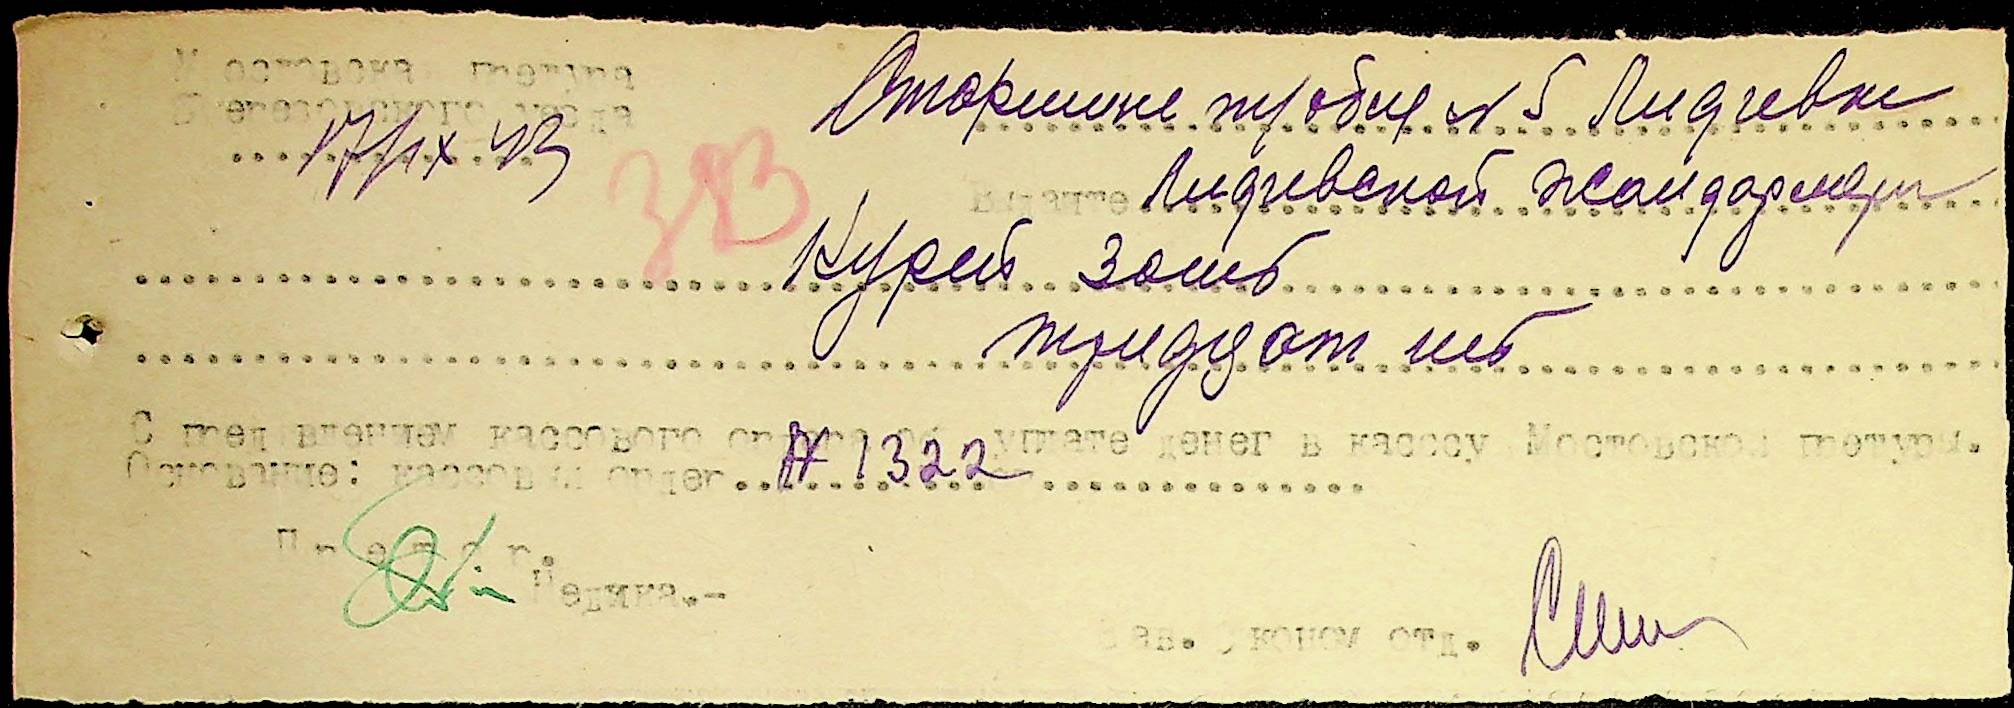 Мостовска претура
Березовского уезда
17/IX 43
Старшине общ № 5 Лидиевки
выдайте Лидиевской жандармери
Курей 30 шт
тридцат шт
С предявлением кассового ордера об уплате денег в кассу Мостовской претуры.
Основание: кассовый ордер № 1322
Претор:
Зав. Эконом отд.